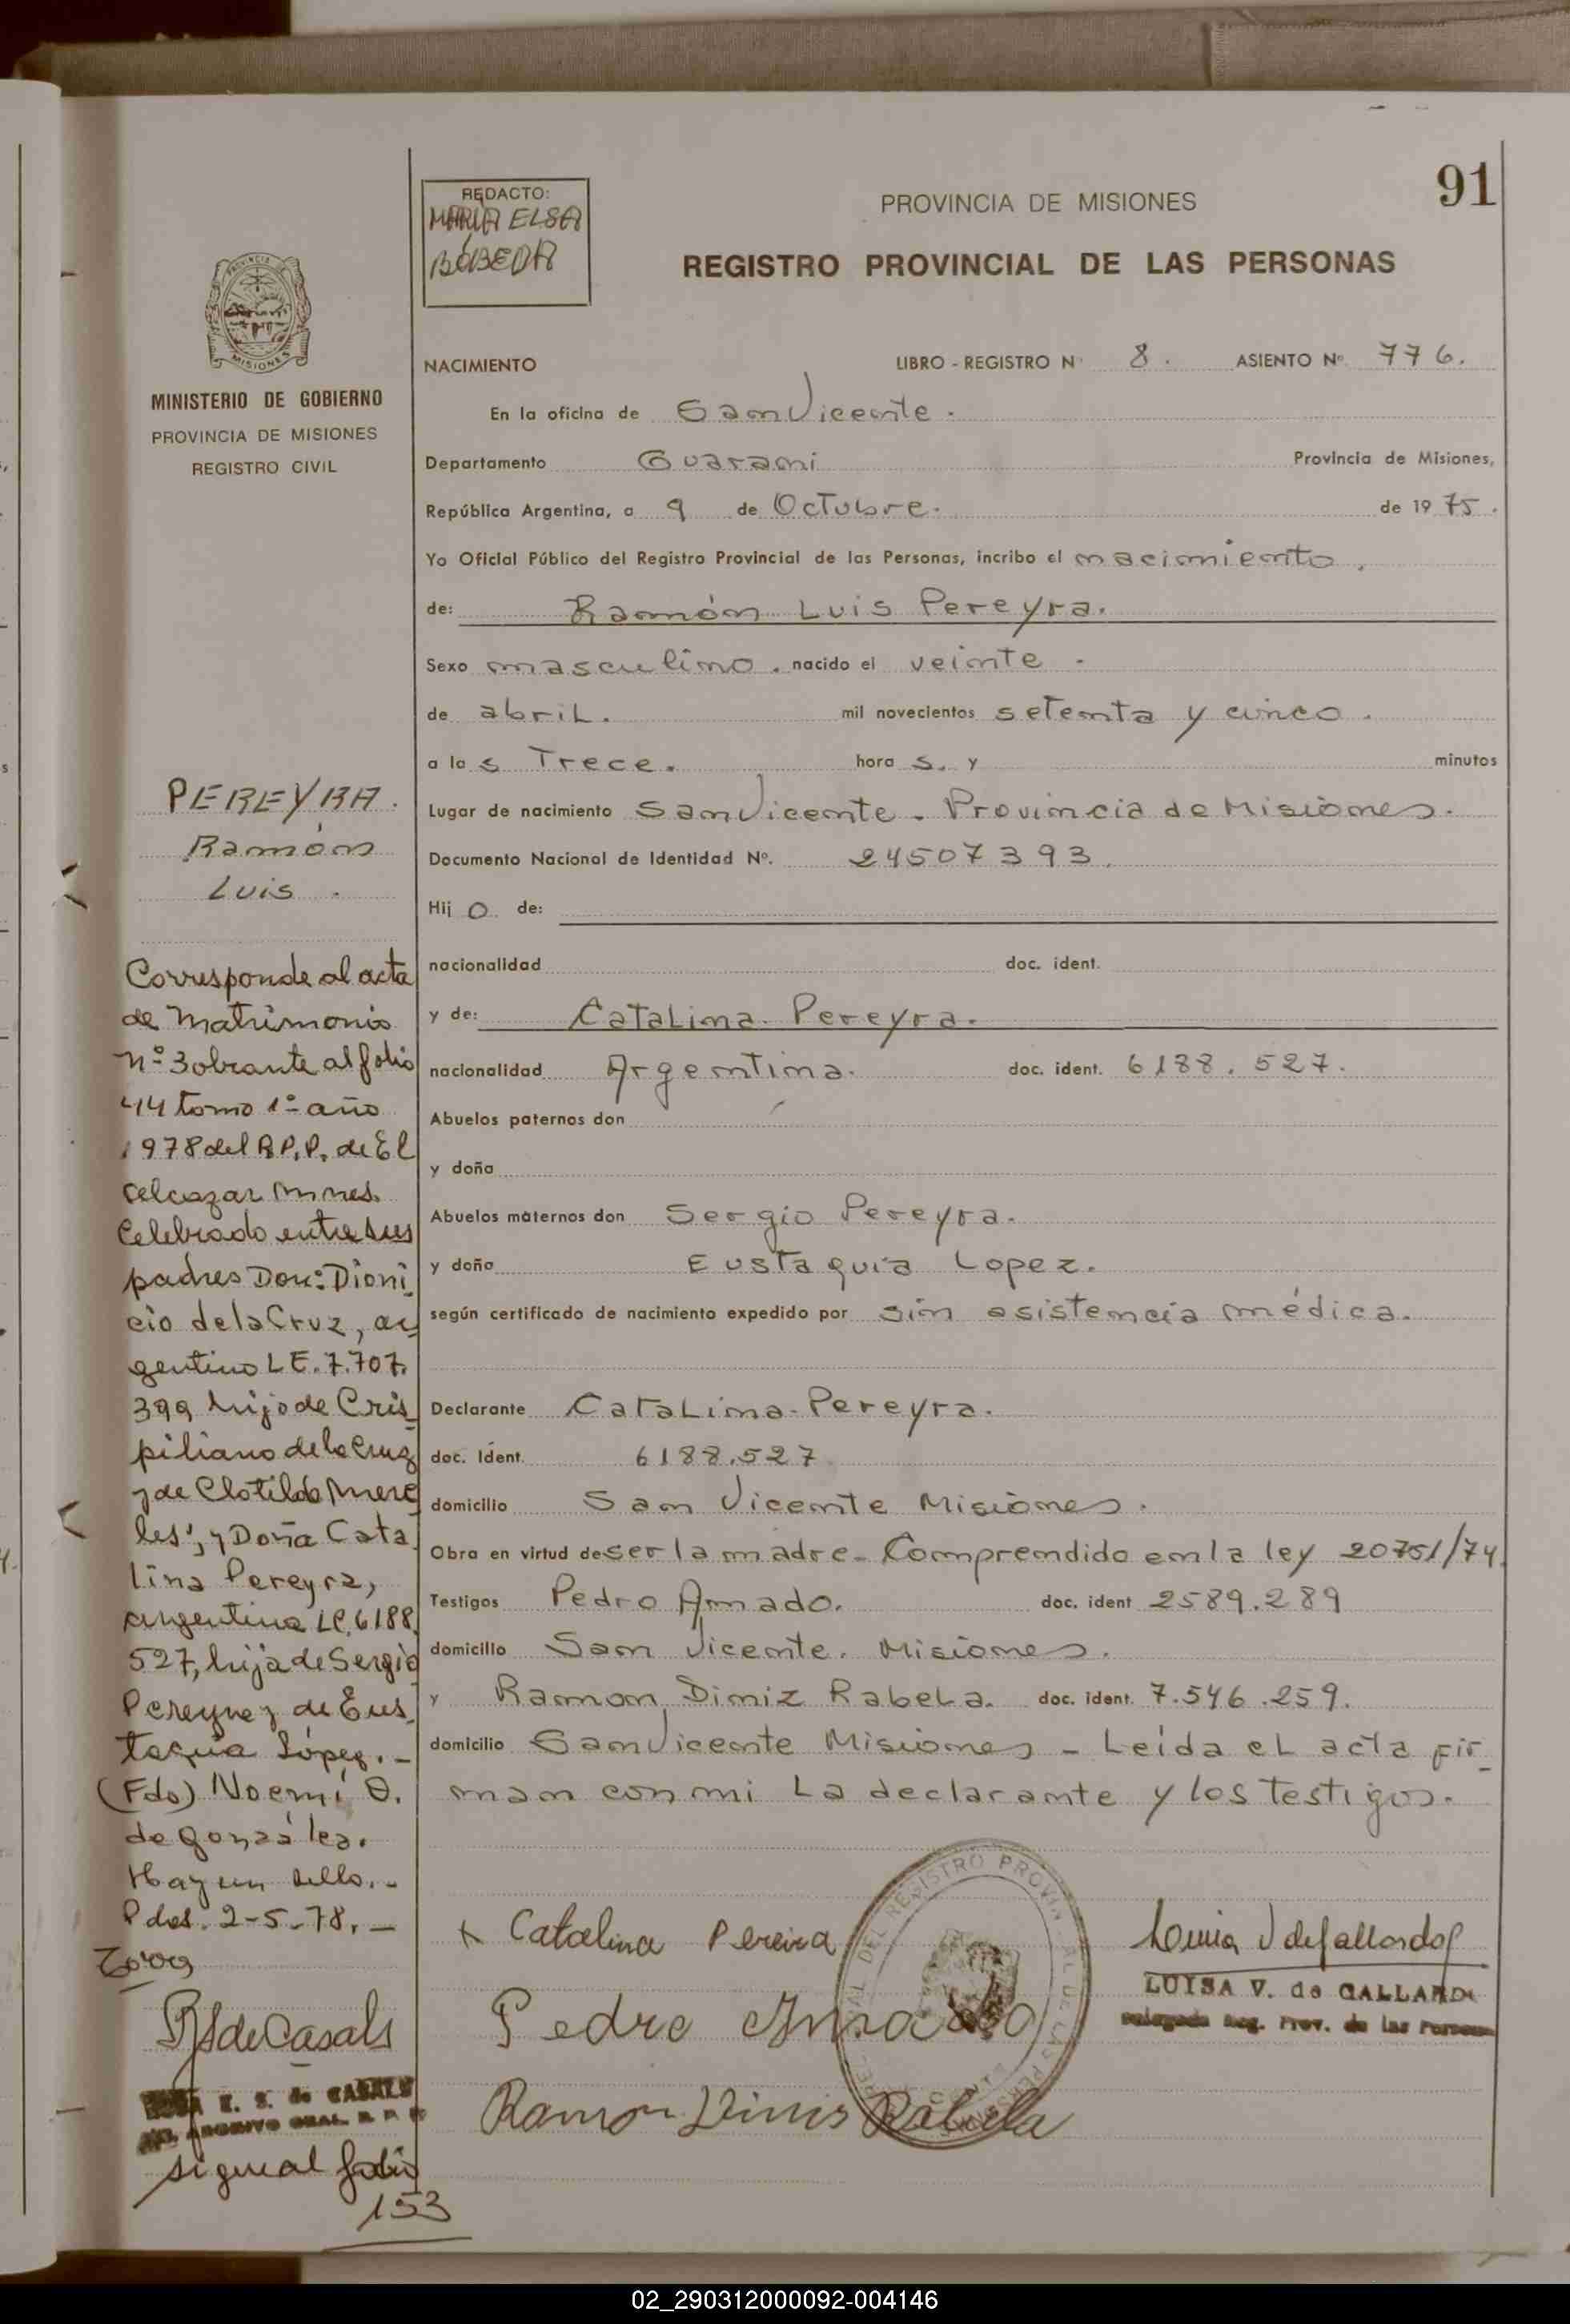 91
REDACTO:
MARIA ELSA
BOBEDA
PROVINCIA DE MISIONES
REGISTRO PROVINCIAL DE LAS PERSONAS
PROVINCIA
MISIONES
MINISTERIO DE GOBIERNO
PROVINCIA DE MISIONES
REGISTRO CIVIL
NACIMIENTO LIBRO - REGISTRO Nº 8. ASIENTO Nº. 776.
En la oficina de San Vicente.
Departamento Guarani Provincia de Misiones,
República Argentina, a 9 de Octubre. de 1975.
Yo Oficial Público del Registro Provincial de las Personas, incribo el nacimiento.
de: Ramón Luis Pereyra.
Sexo masculino. nacido el veinte.
de abril. mil novecientos setenta y cinco.
a las Trece. horas. y minutos
Lugar de nacimiento San Vicente. Provincia de Misiones.
Documento Nacional de Identidad Nº. 24507393.
Hijo de:
nacionalidad doc. ident.
y de: Catalina Pereyra.
nacionalidad Argentina. doc. ident. 6188.527.
Abuelos paternos don
y doña
Abuelos maternos don Sergio Pereyra.
y doña Eustaquia Lopez.
según certificado de nacimiento expedido por sin asistencia médica.
Declarante Catalina Pereyra.
doc. ident. 6188.527
domicilio San Vicente Misiones.
Obra en virtud de ser la madre. Comprendido en la ley 20751/74.
Testigos Pedro Amado. doc. ident 2589.289
domicilio San Vicente. Misiones.
y Ramon Diniz Rabela. doc. ident. 7.546.259.
domicilio San Vicente Misiones - Leída el acta fir_
man con mi La declarante y los testigos.
PEREYRA.
Ramón
Luis.
Corresponde al acta
de Matrimonio
nº 3 obrante al folio
44 tomo 1º año
1978 del R.P.P. de El
Alcazar Mnes.
Celebrado entre sus
padres Don: Dioni_
cio de la Cruz, ar_
gentino L E. 7.707.
399 hijo de Cris_
piliano de la Cruz
y de Clotilde Mere_
les; y Doña Cata_
lina Pereyra,
argentina LC. 6188.
527, hija de Sergio
Pereyra y de Eus_
taquia López.-
(Fdo) Noemí O.
de González.
Hay un sello.-
Pdas. 2-5-78.-
R S de Casals
E. S. de CASALS
ARCHIVO GRAL. R. P. P.
sigue al folio
153
x Catalina Pereira
Pedro Amado
Ramon Dinis Rabela
DEL REGISTRO PROVIN
Luisa V de Gallardo
LUISA V. de GALLARDO
Delegada Reg. Prov. de las Personas
02_290312000092-004146